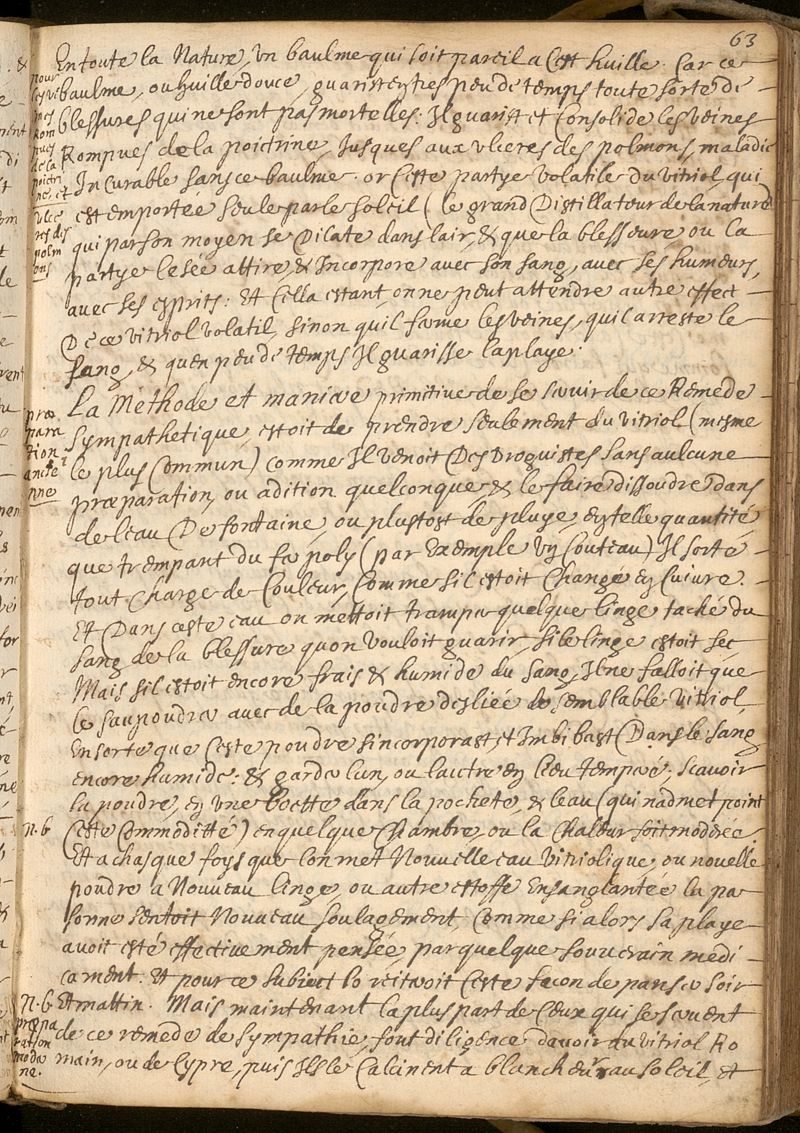 63
En toute la Nature, vn baulme qui soit pareil a Cest huille. Car ce
baulme, ou huille douce, guarist en tres peu de temps toute sorte de
blessures qui ne sont pas mortelles: Il guarist et Consolide les veines
Rompues de la poictrine, Jusques aux vlceres des polmons, maladie
Incurable sans ce baulme. or Ceste partye volatile du vitriol, qui
est emportée seule par le soleil (le grand Distillateur de la nature)
qui par son moyen se Dilate dans lair, & que la blesseure, ou la
partye lesée attire, & Incorpore avec son sang, avec ses humeurs,
avec ses esprits: Et Cella estant, on ne peut attendre autre effect
De ce vitriol volatil, sinon quil ferme les veines, quil arreste le
sang, & quen peu de temps Il guarisse la playe.
pour
les vei
nes
Rom
pues
de la
poictri
ne, et
vlce
res des
polm
ons
La Methode et maniere primitive de se servir de ce Remede
Sympathetique, estoit de prendre seulement du vitriol (mesme
le plus Commun) comme Il venoit Des Droguistes sans aulcune
præparation, ou adition quelconque, & le faire dissoudre dans
de leau De fontaine, ou plustost de pluye, en telle quantité
que trempant du fer poly (par Exemple vn Couteau) Il sorte
tout Chargé de Couleur, Comme sil estoit Changé en Cuivre.
Et Dans ceste eau on mettoit tramper quelque linge taché du
sang de la blessure quon vouloit guarir, si le linge estoit sec
Mais sil estoit encore frais & humide du sang, Il ne falloit que
le saupoudrer avec de la poudre desliée de semblable vitriol,
En sorte que Ceste poudre sincorporast, et Imbibast Dans le sang
encore humide: & garder lun, ou laictre en lieu temperé, scavoir
la poudre, en vne boette dans la pochete, & leau (qui nadmet point
Ceste Commoditté) en quelque Chambre, ou la Chaleur soit moderée.
Et a chasque foys que lon met Nouvelle eau vitriolique, ou nouvelle
poudre a Nouveau linge, ou autre estoffe Ensanglantée la per
sonne sentoit Nouveau soulagement, Comme si alors sa playe
avoit esté effectivement pensée, par quelque souverain medi
cament. Et pour ce subiect lo reiteroit Ceste facon de panser soir
Et mattin. Mais maintenant la plus part de Ceux qui se servent
de ce remede de Sympathie, font diligence davoir du vitriol Ro
main, ou de Cypre, puis Ils le Calcinent a blancheur au soleil, et
præ
para
tion
ancie
nne
N.b
N.b
præpa
ration
mode
ne.